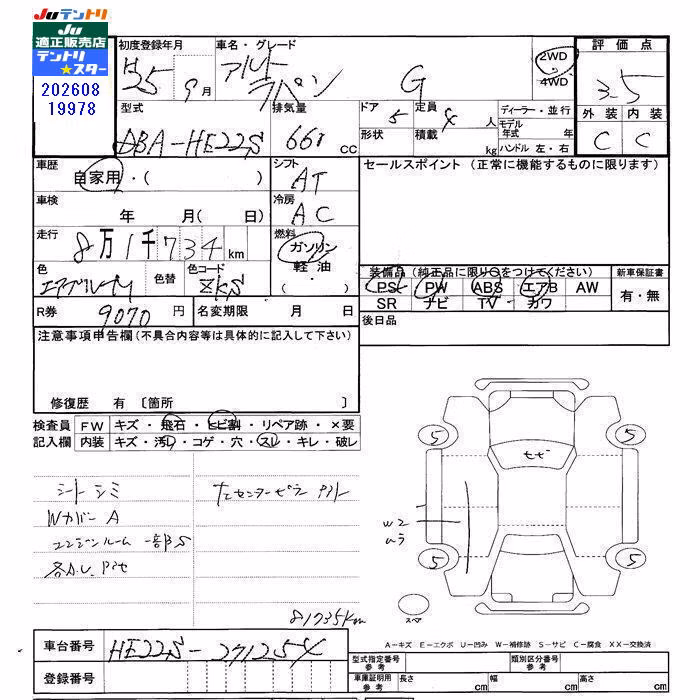 JUテントリ
JU
適正販売店
テントリ
★スター
202608
19978
初度登録年月 車名・グレード
H25 9月 アルト ラパン G
2WD
4WD
評価点
3.5
型式 排気量 ドア 定員 ディーラー・並行
DBA-HE22S 660 cc 5 4 人
形状 積載 kg
モデル年式 年
ハンドル 左・右
外装 内装
C C
車歴 シフト セールスポイント (正常に機能するものに限ります)
自家用・( ) AT
車検 冷房
年 月( 日) AC
走行 燃料
8万1千734km ガソリン
軽油
・( )
色 色替 色コード
エアブルーM ZKS
R券 9070 円 名変期限 月 日
装備品 (純正品に限り○をつけてください) 新車保証書
PS PW ABS エアB AW 有・無
SR ナビ TV カワ
後日品
注意事項申告欄 (不具合内容等は具体的に記入して下さい)
修復歴 有 〔箇所 〕
検査員 FW キズ・飛石・ヒビ割・リペア跡・×要
記入欄 内装 キズ・汚レ・コゲ・穴・スレ・キレ・破レ
シートシミ
Wカバー A
エンジンルーム 一部S
81735km
ヒビ
5 5
W2
ムラ
5 5
スペア
A=キズ E=エクボ U=凹み W=補修跡 S=サビ C=腐食 XX=交換済
車台番号 HE22S-271254
登録番号
型式指定番号 参考 類別区分番号 参考
車庫証明用 参考 長さ cm 幅 cm 高さ cm